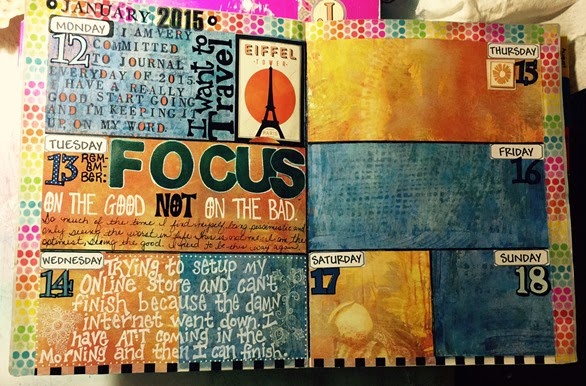 JANUARY 2015
MONDAY
12
I AM VERY
COMMITTED
TO JOURNAL
EVERYDAY OF 2015.
I HAVE A REALLY
GOOD START GOING
AND I'M KEEPING IT
UP, ON MY WORD.
I want to
Travel
EIFFEL
TOWER
TUESDAY
13
REM-
EM-
BER:
FOCUS
ON THE GOOD NOT ON THE BAD.
So much of the time I find myself being pessimistic and
only seeing the worst in life. This is not me. I am the
optimist, seeing the good. I need to be this way again
WEDNESDAY
14
TRYING TO SETUP MY
ONLINE STORE AND CAN'T
FINISH BECAUSE THE DAMN
INTERNET WENT DOWN. I
HAVE ATT COMING IN THE
MORNING AND THEN I CAN FINISH.
THURSDAY
15
FRIDAY
16
SATURDAY
17
SUNDAY
18